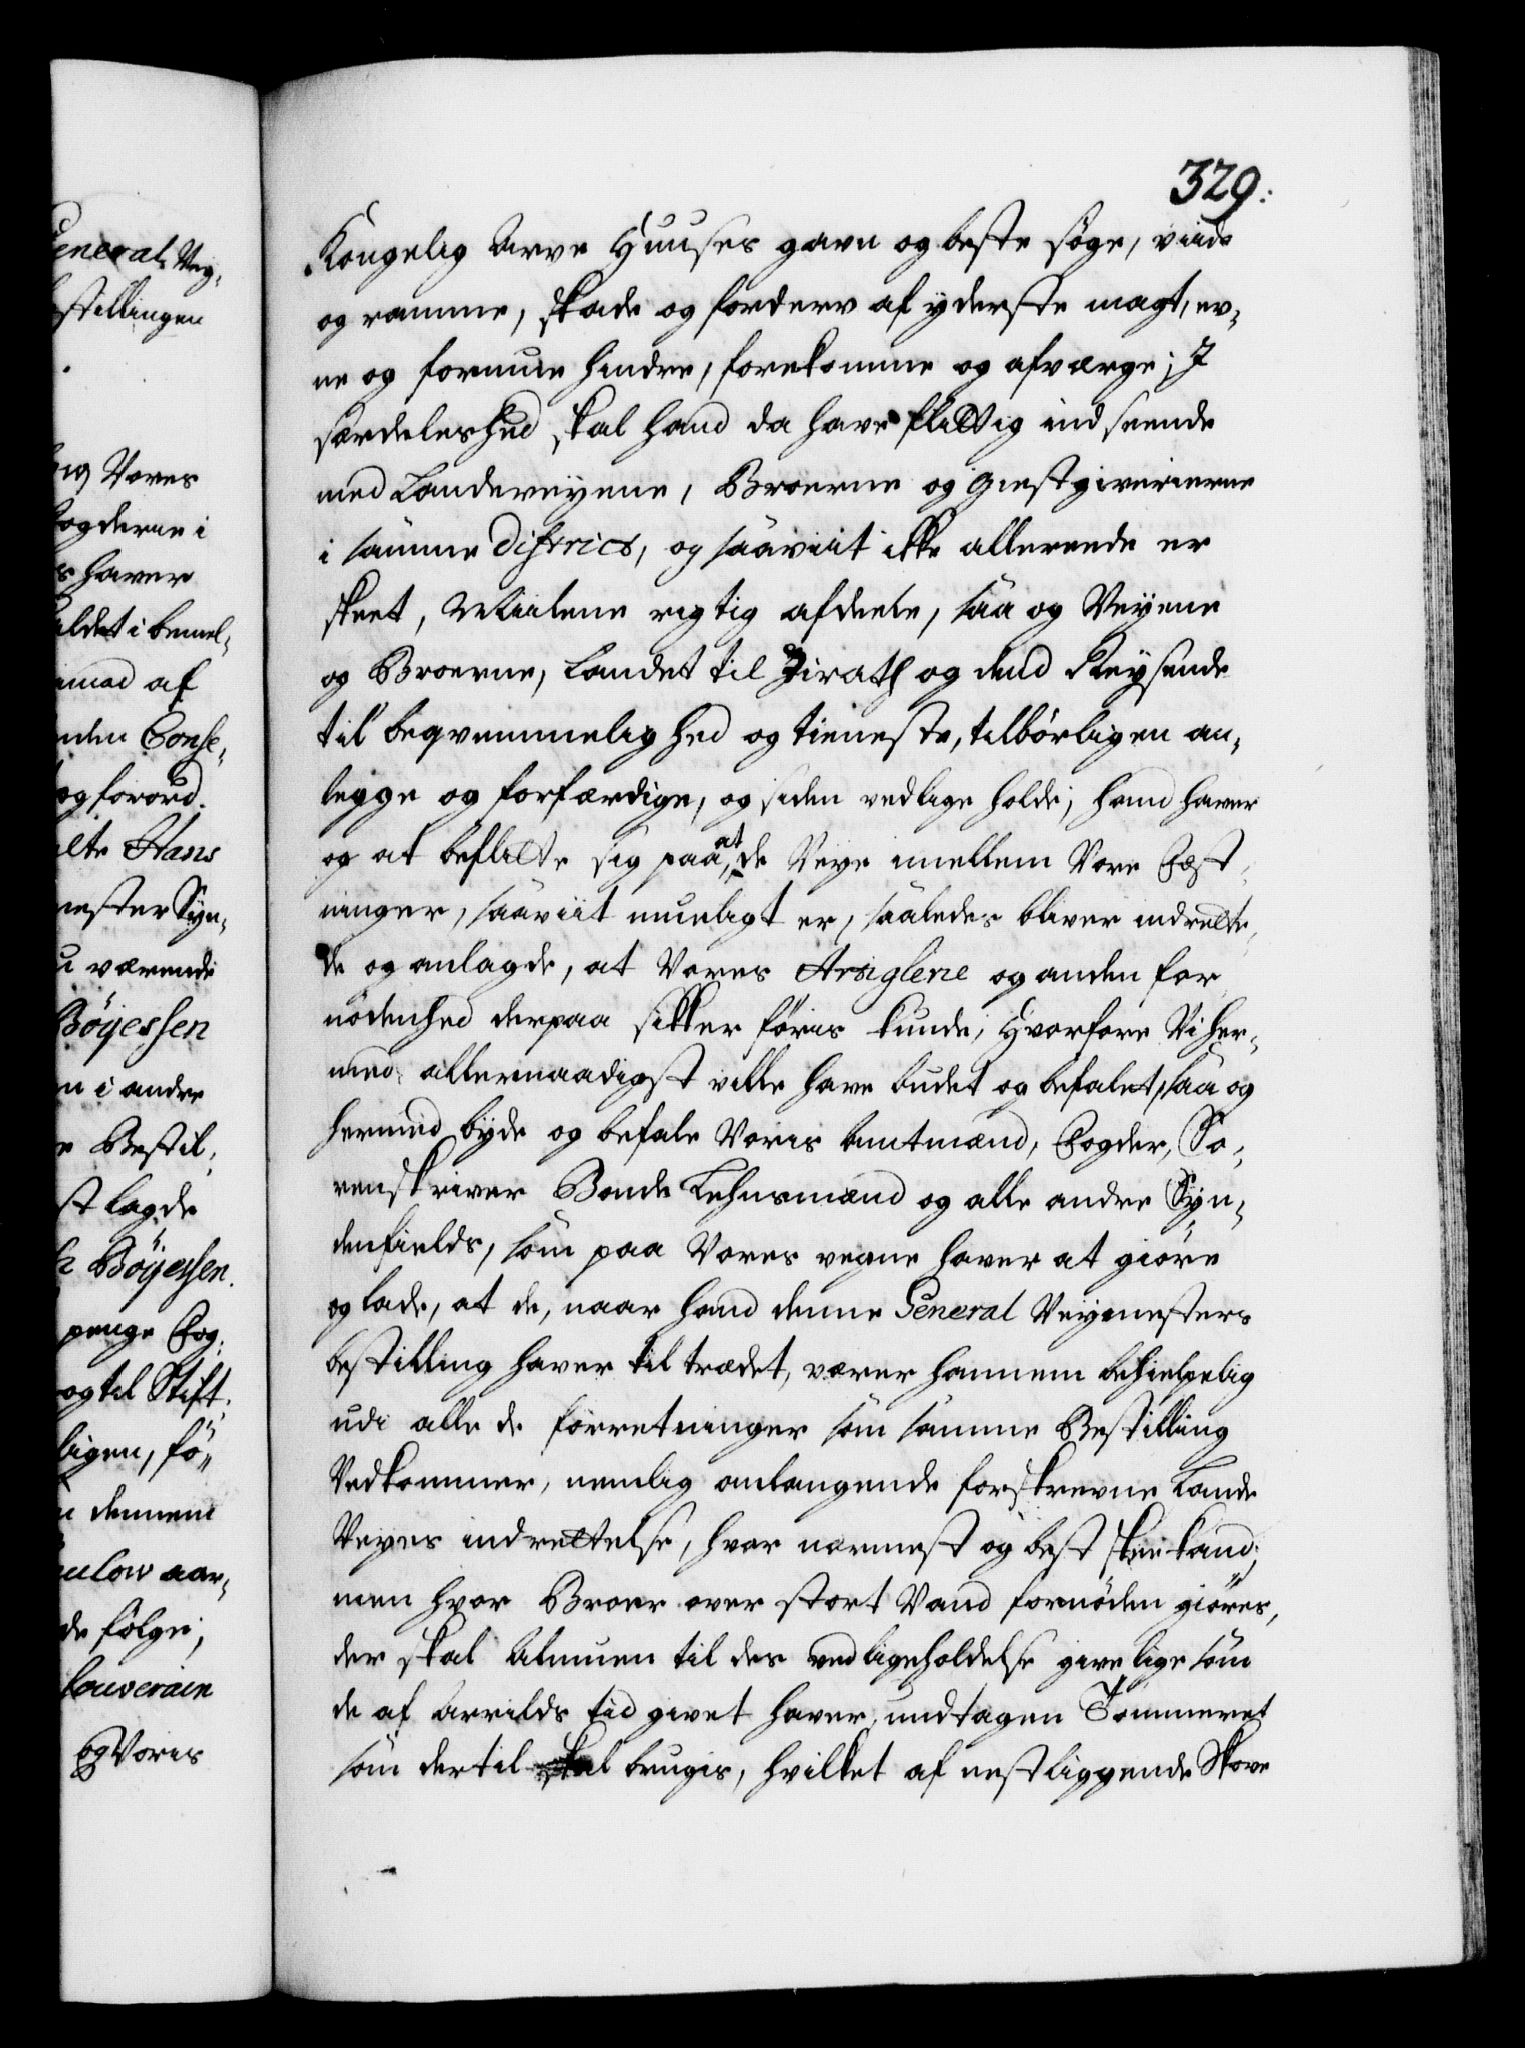 329.
Kongelig Arve Huuses gavn og beste søge, viide
og ramme, skade og forderv af yderste magt, ev-
ne og formue hindre, forekomme og afværge; J
særdeleshed skal hand da have flittig indseende
med Landeveyene, Broerne og Giestgiverierne
i samme District, og saaviit ikke allereede er
skeet, Miilene rigtig afdeele, saa og Veyene
og Broerne, Landet til Zirath og dend Reysende
til beqvemmelighed og tieneste, tilbørligen an-
legge og forfærdige, og siden vedlige holde; hand haver
og at beflitte sig paa, at de Veye imellem Vore Fæst-
ninger, saaviit mueligt er, saaledes bliver indrette-
de og anlagde, at Vores Artiglerie og anden for
nødenhed derpaa sikker føris kunde; Hvorfore Vi her-
med allernaadigst ville have budet og befalet, saa og
hermed byde og befale Voris Amtmænd, Fogder, So-
renskriver Bonde Lehnsmænd og alle andre Syn-
denfields, som paa Vores vegne haver at giøre
og lade, at de, naar hand denne General Veymesters
bestilling haver tiltrædet, værer hannem behielpelig
udi alle de forretninger som samme Bestilling
Vedkommer, nemlig anlangende forskrevne Lande
Veyes indrettelse, hvor nærmest og best skee kand;
men hvor Broer over stort Vand fornøden giøres,
der skal Almuen til des vedligeholdelse give lige som
de af Arrilds tid givet haver, undtagen Tømmeret
som dertil skal brugis, hvilket af nestliggende Skove
eneral Vey-
stillingen
Vores
ogderne i
s haver
aldet i bemel-
af
nden Conse-
og forord.
lte Hans
mester Syn-
u værende
Böyessen
n i andre
e Bestil-
st lagde
Böyessen.
penge Fog-
og til Stift-
ligen, fö-
dennem
ulow aar-
de følge,
Souverain
og Voris